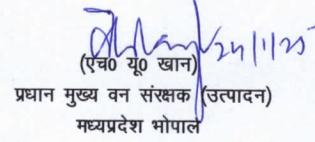 24/1/25
(एच0 यू0 खान)
प्रधान मुख्य वन संरक्षक (उत्पादन)
मध्यप्रदेश भोपाल